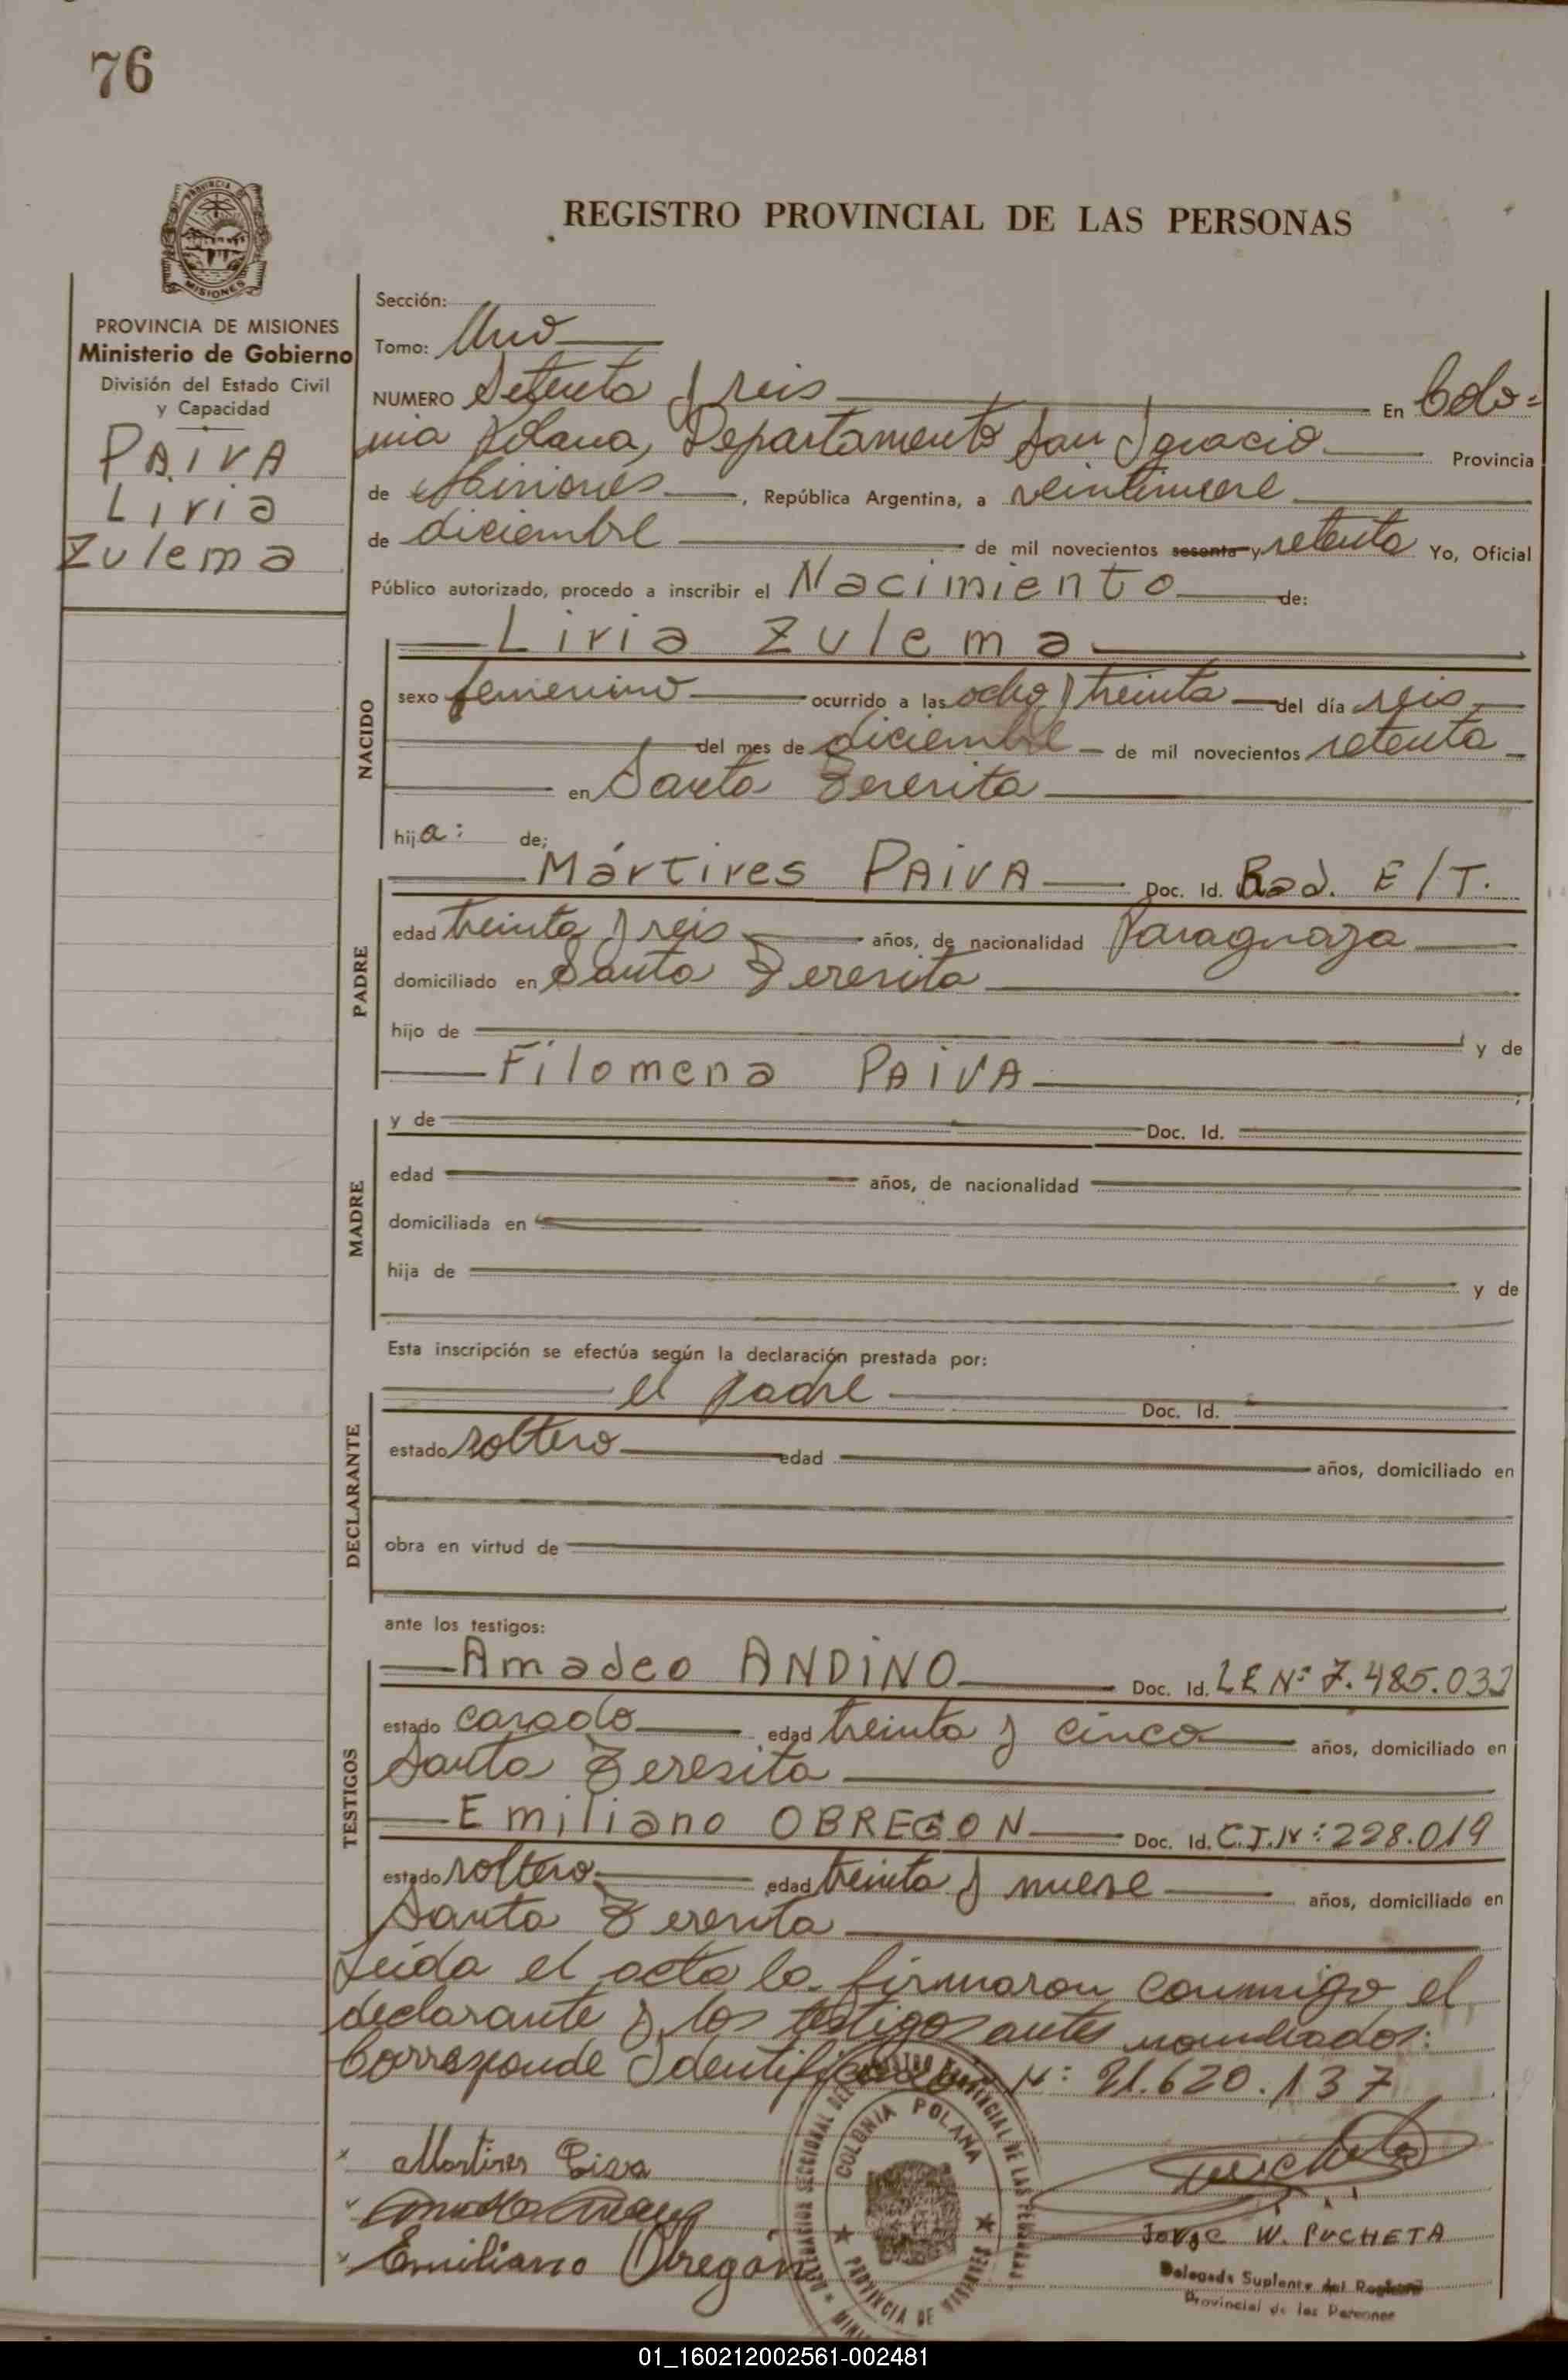 76
PROVINCIA DE MISIONES
REGISTRO PROVINCIAL DE LAS PERSONAS
PROVINCIA DE MISIONES
Ministerio de Gobierno
División del Estado Civil
y Capacidad
PAIVA
Liria
Zulema
Sección:
Tomo: Uno
NUMERO Setenta y seis En Colo=
nia Polana, Departamento San Ignacio Provincia
de Misiones, República Argentina, a veintinueve
de diciembre de mil novecientos sesenta y setenta Yo, Oficial
Público autorizado, procedo a inscribir el Nacimiento de:
NACIDO
Liria Zulema
sexo femenino ocurrido a las ocho y treinta del día seis
del mes de diciembre de mil novecientos setenta
en Santa Teresita
hija: de;
PADRE
Mártires PAIVA Doc. Id. Rad. E/T.
edad treinta y seis años, de nacionalidad Paraguaya
domiciliado en Santa Teresita
hijo de y de
Filomena PAIVA
MADRE
y de Doc. Id.
edad años, de nacionalidad
domiciliada en
hija de y de
Esta inscripción se efectúa según la declaración prestada por:
DECLARANTE
el padre Doc. Id.
estado soltero edad años, domiciliado en
obra en virtud de
ante los testigos:
TESTIGOS
Amadeo ANDINO Doc. Id. LE Nº 7.485.032
estado casado edad treinta y cinco años, domiciliado en
Santa Teresita
Emiliano OBREGON Doc. Id. C.I.Nº: 228.019
estado soltero edad treinta y nueve años, domiciliado en
Santa Teresita
Leída el acta la firmaron conmigo el
declarante y los testigos antes nombrados:
Corresponde Identificación Nº: 21.620.137
COLONIA POLANA
PROVINCIA DE MISIONES
Martires Paiva
Emiliano Obregón
Jorge W. PUCHETA
Delegado Suplente del Registro
Provincial de las Personas
01_160212002561-002481